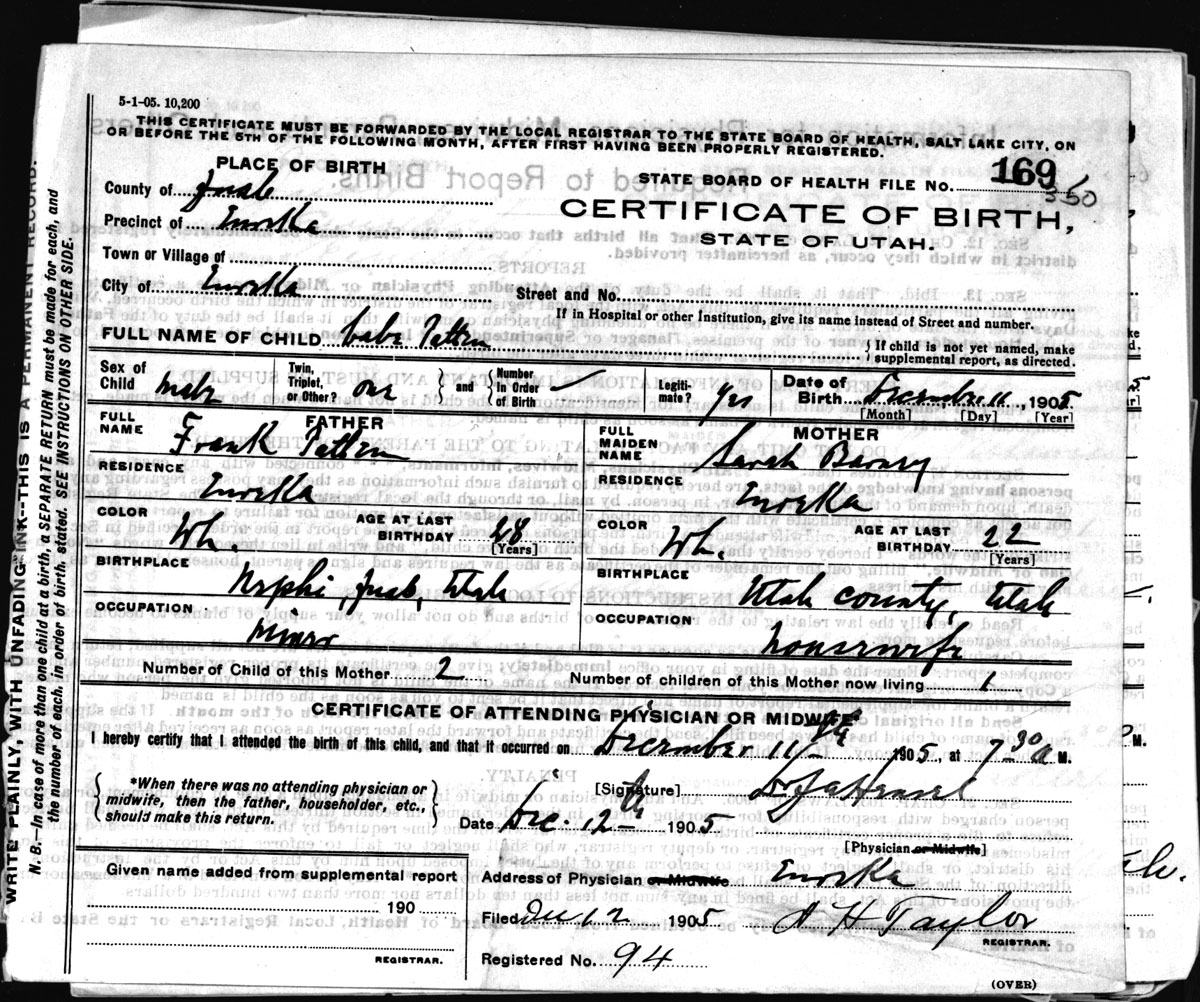 5-1-05. 10,200
THIS CERTIFICATE MUST BE FORWARDED BY THE LOCAL REGISTRAR TO THE STATE BOARD OF HEALTH, SALT LAKE CITY, ON
OR BEFORE THE 5TH OF THE FOLLOWING MONTH, AFTER FIRST HAVING BEEN PROPERLY REGISTERED.
PLACE OF BIRTH
STATE BOARD OF HEALTH FILE NO. 169
350
County of Juab
CERTIFICATE OF BIRTH,
STATE OF UTAH.
Precinct of Eureka
Town or Village of
City of Eureka
Street and No.
If in Hospital or other Institution, give its name instead of Street and number.
FULL NAME OF CHILD babe Patten
{ If child is not yet named, make
supplemental report, as directed.
Sex of Child male
Twin, Triplet, or Other? one
{ and { Number In Order of Birth
Legitimate? yes
Date of Birth December 11, 1905
[Month] [Day] [Year]
FATHER
FULL NAME Frank Patten
RESIDENCE Eureka
COLOR Wh.
AGE AT LAST BIRTHDAY 28
[Years]
BIRTHPLACE Nephi, Juab, Utah
OCCUPATION Miner
MOTHER
FULL MAIDEN NAME Sarah Barney
RESIDENCE Eureka
COLOR Wh.
AGE AT LAST BIRTHDAY 22
[Years]
BIRTHPLACE Utah county, Utah
OCCUPATION housewife
Number of Child of this Mother 2
Number of children of this Mother now living 1
CERTIFICATE OF ATTENDING PHYSICIAN OR MIDWIFE*
I hereby certify that I attended the birth of this child, and that it occurred on December 11th 1905, at 7 30 a M.
{ *When there was no attending physician or
midwife, then the father, householder, etc.,
should make this return. }
[Signature]
Date Dec. 12th 1905
[Physician or Midwife]
Given name added from supplemental report
190
REGISTRAR.
Address of Physician or Midwife Eureka
Filed Dec 12 1905
J H Taylor
REGISTRAR.
Registered No. 94
(OVER)
WRITE PLAINLY, WITH UNFADING INK--THIS IS A PERMANENT RECORD.
N. B.--In case of more than one child at a birth, a SEPARATE RETURN must be made for each, and
the number of each, in order of birth, stated. SEE INSTRUCTIONS ON OTHER SIDE.